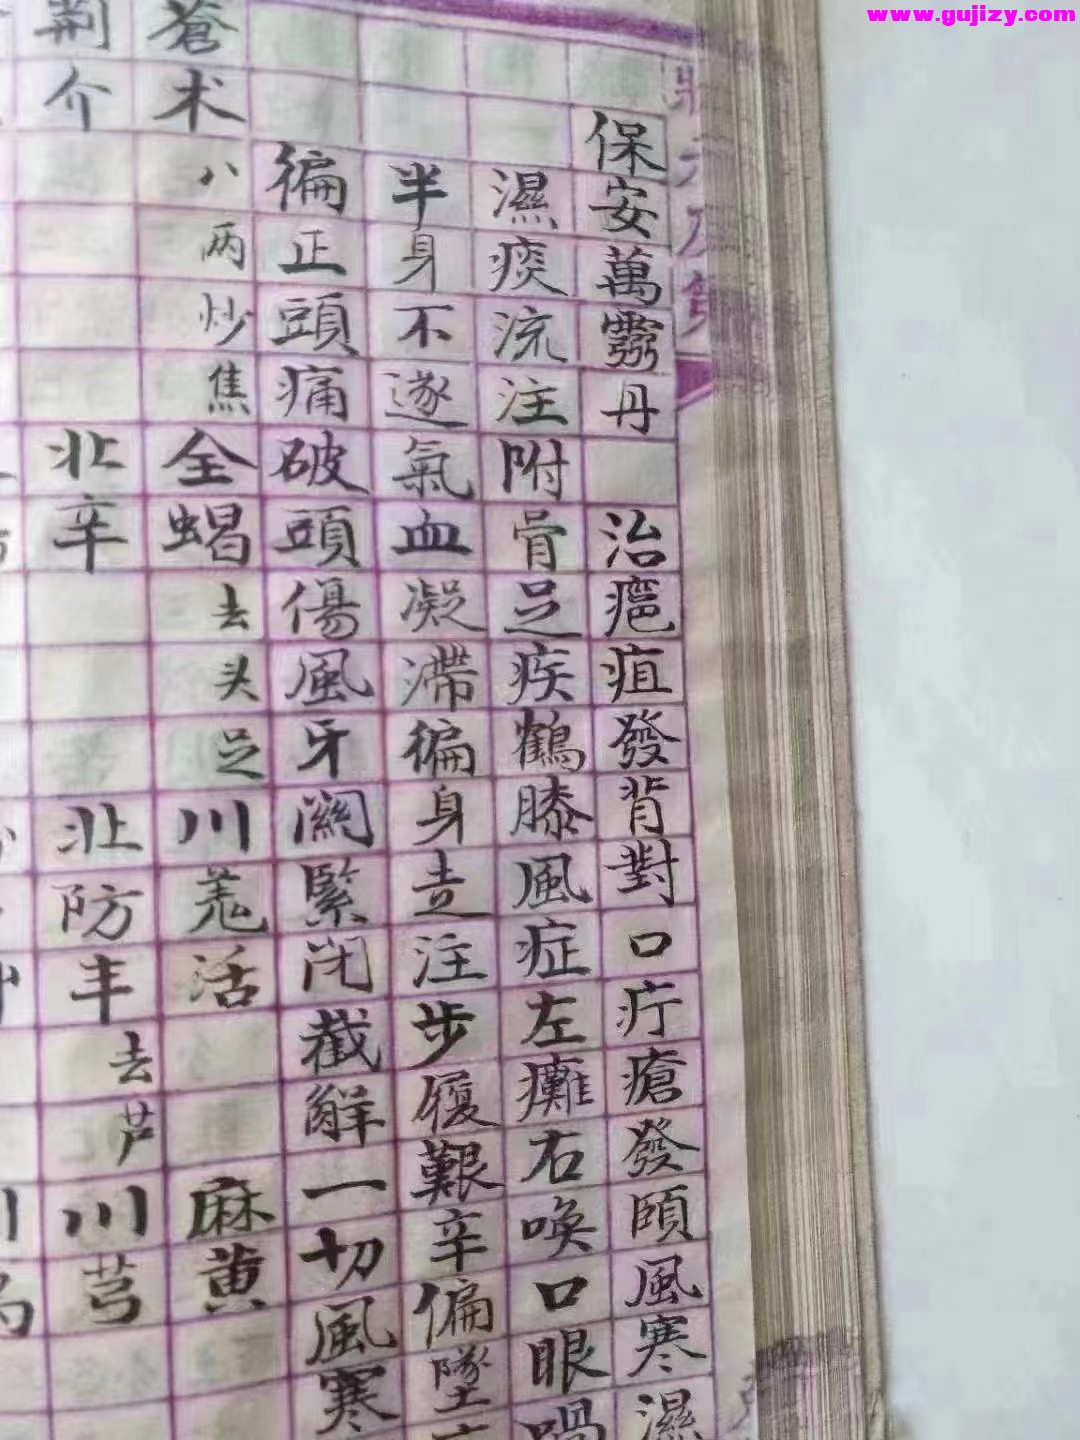 www.gujizy.com
保安萬靈丹 治瘡疽發背對口疔瘡發頤風寒濕
濕痰流注附骨足疾鶴膝風症左癱右喚口眼喎
半身不遂氣血凝滯徧身走注步履艱辛偏墜
徧正頭痛破頭傷風牙關緊閉截解一切風寒
蒼术八两炒焦全蝎去头足川羗活 麻黄
荆介 北辛 北防丰去芦川芎